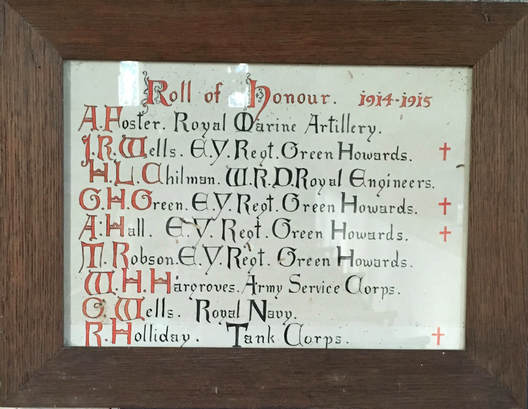 Roll of Honour. 1914-1915
A. Foster. Royal Marine Artillery.
J.R. Wells. E.Y. Regt. Green Howards. †
H.L. Chilman. W.R.D. Royal Engineers.
G.H. Green. E.Y. Regt. Green Howards. †
A. Hall. E.Y. Regt. Green Howards. †
T. Robson. E.Y. Regt. Green Howards.
W.H. Hargroves. Army Service Corps.
G. Wells. Royal Navy.
R. Holliday. Tank Corps. †